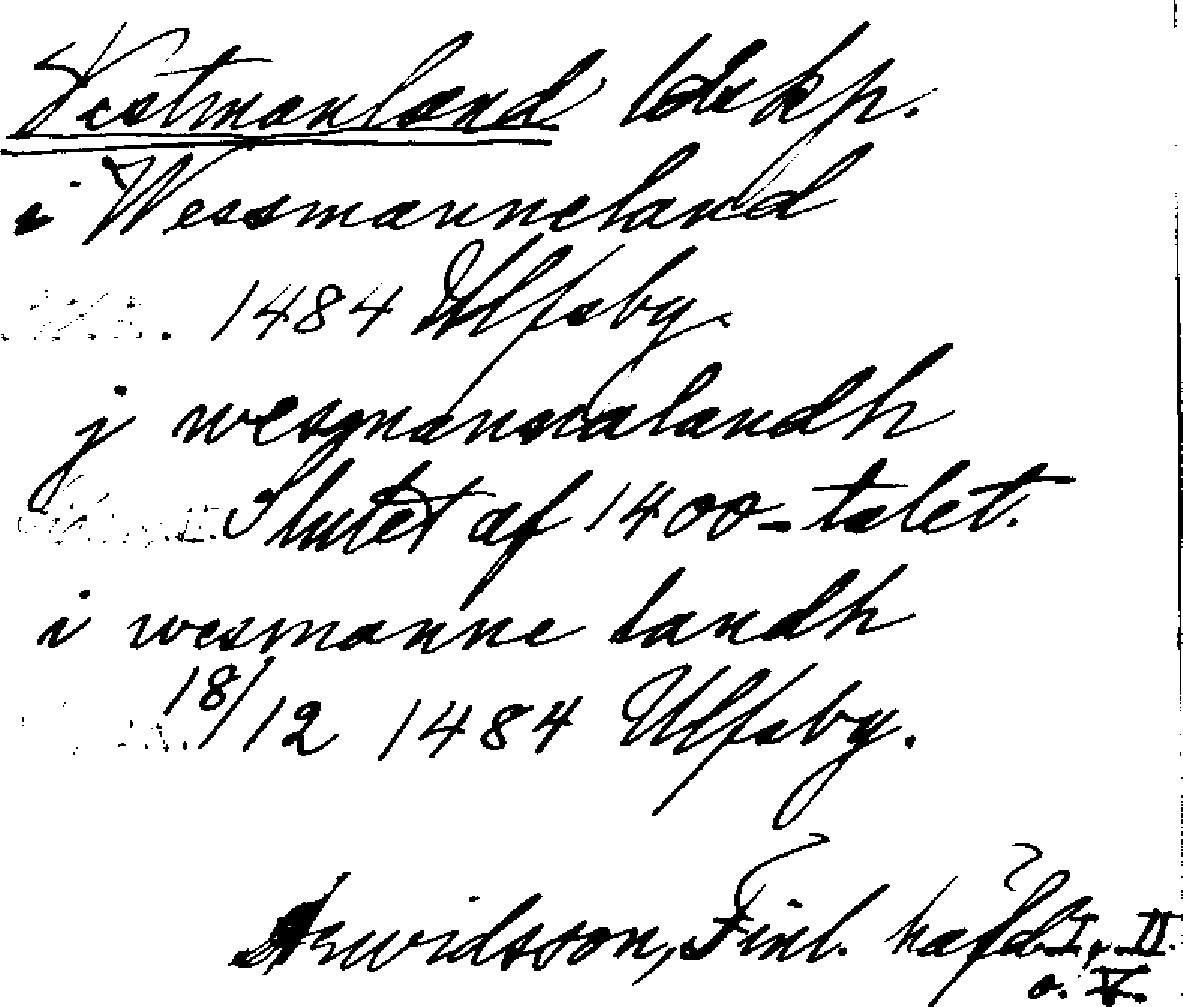 Vestmanland ldskp.
i Wessmanneland
1484 Ulfsby.
j wesmannalandh
Slutet af 1400-talet.
i wesmanne landh
18/12 1484 Ulfsby.
Arwidsson, Finl. häfd. I, II
o. V.